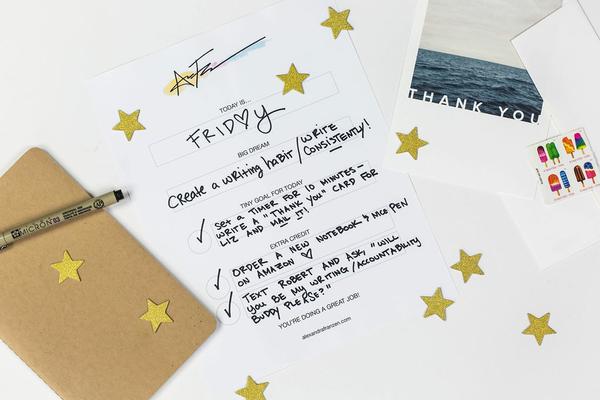 TODAY IS...
FRID♡Y
BIG DREAM
Create a writing habit / WRITE CONSISTENTLY!
TINY GOAL FOR TODAY
SET A TIMER FOR 10 MINUTES –
WRITE A "THANK YOU" CARD FOR
LIZ AND MAIL IT!
EXTRA CREDIT
ORDER A NEW NOTEBOOK & NICE PEN
ON AMAZON ♡
TEXT ROBERT AND ASK "WILL
YOU BE MY WRITING/ACCOUNTABILITY
BUDDY PLEASE?"
YOU'RE DOING A GREAT JOB!
alexandrafranzen.com
THANK YOU
MICRON